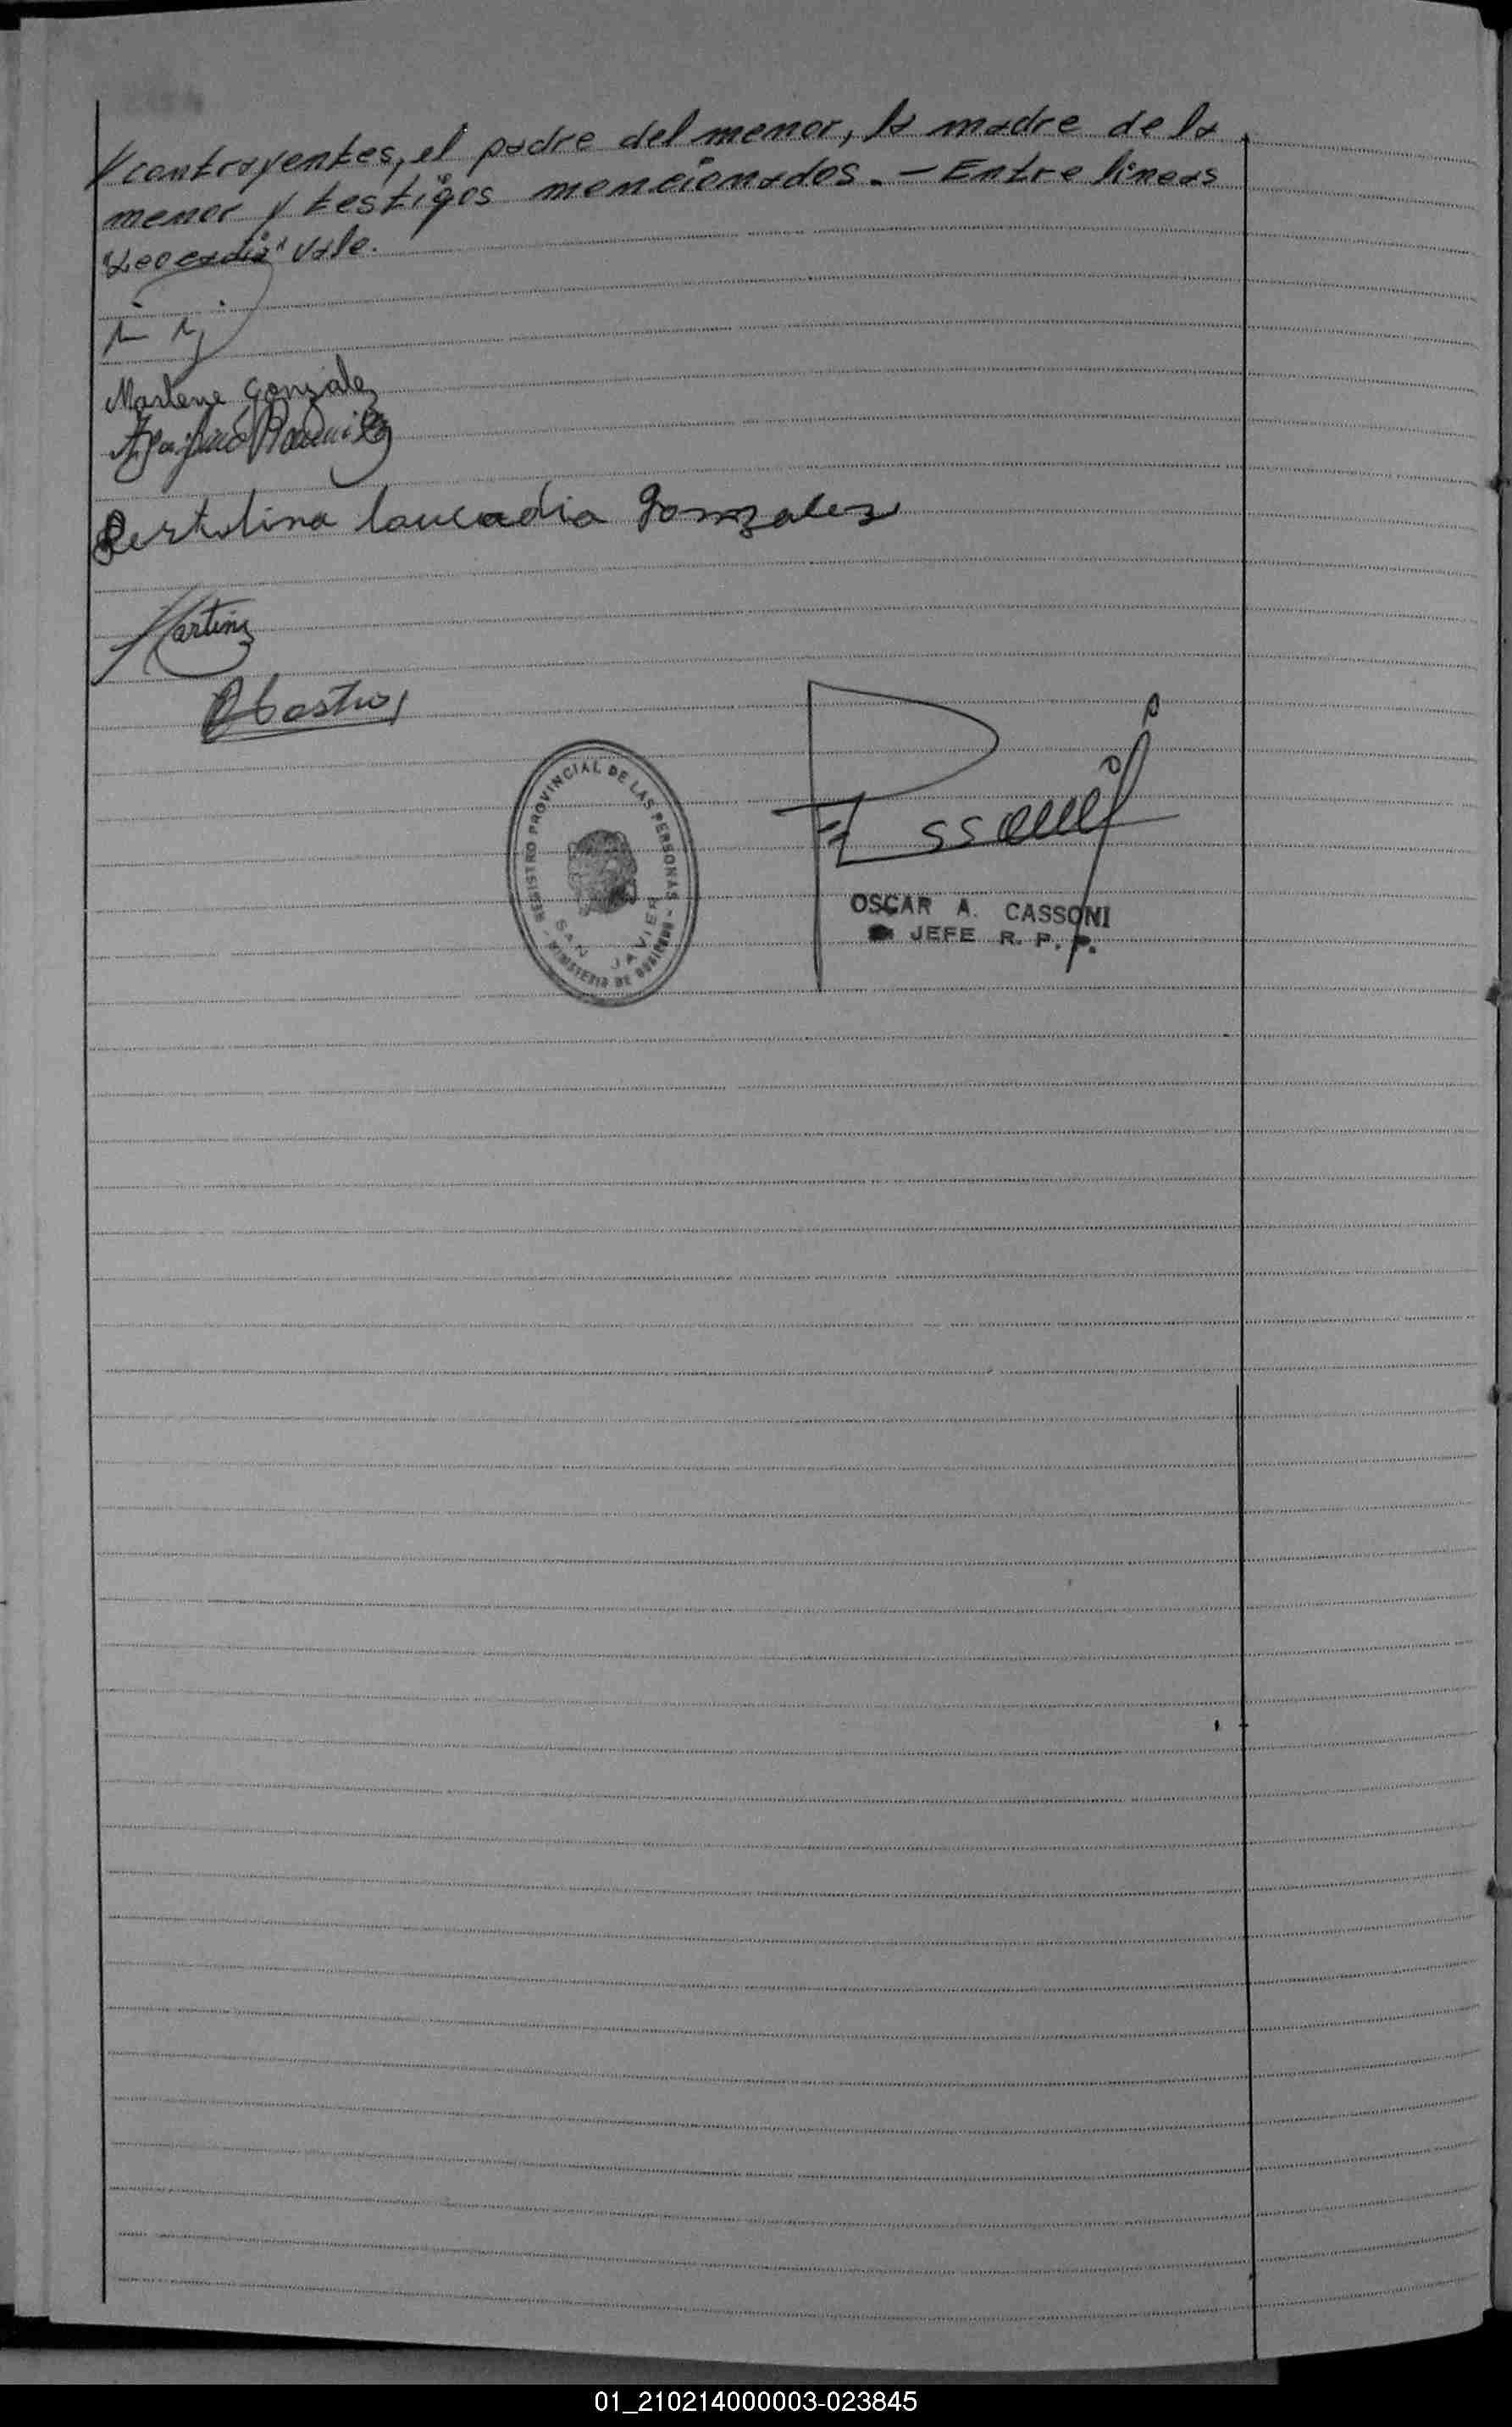 contrayentes, el padre del menor, la madre de la
menor y testigos mencionados. - Entre lineas
"Leocadia" Vale.
Marlene Gonzalez
Bertolina laucadia Gonzalez
Martinez
REGISTRO PROVINCIAL DE LAS PERSONAS - MINISTERIO DE GOBIERNO -
SAN JAVIER
OSCAR A. CASSONI
JEFE R. P. P.
01_210214000003-023845